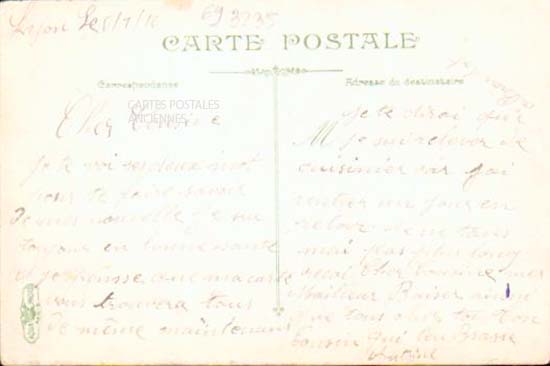 Lyon Le 8/1/16
693235
CARTE POSTALE
Correspondance
Adresse du destinataire
CARTES POSTALES
ANCIENNES
Cher Cousine
Je te voi ses deux mot
pour te faire savoir
de mes nouvelle Je sui
toujour en bonne sante
et je pense que ma carte
vous trouvera tous
de même maintenant
je te dirai que
je sui relever de
cuisinier car jai
un jour en
retour Je ne
mai pas plus long
cher cousine mes
Meilleur Baiser ainsi
que tous chez toi Ton
cousin qui tem Brasse
Antoine